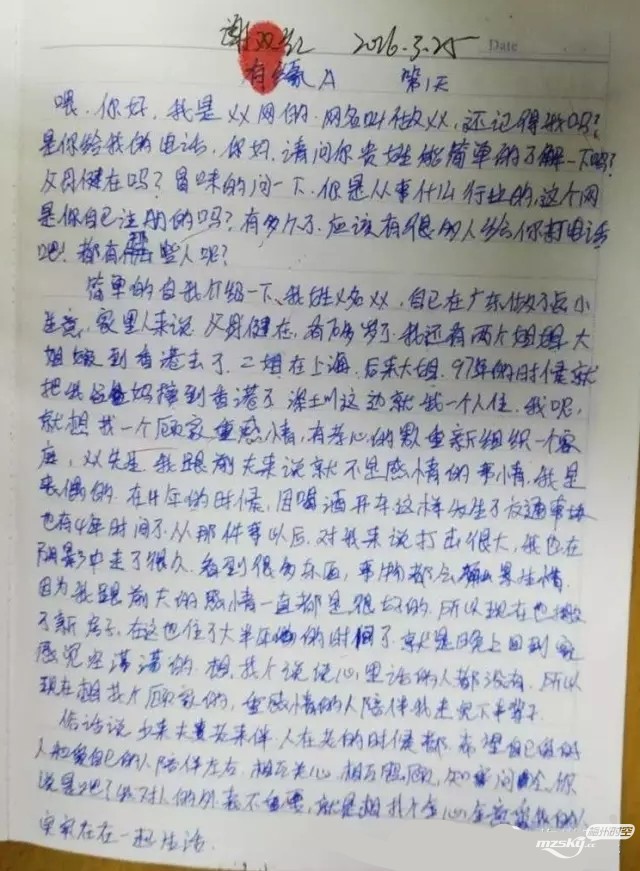 谢双红 2016.3.25 Date
有缘A 第1天
喂.你好,我是XX网的.网名叫做XX,还记得我吗?
是你给我的电话,你好,请问你贵姓能简单的了解一下吗?
父母健在吗?冒昧的问一下,你是从事什么行业的,这个网
是你自己注册的吗?有多久了.应该有很多人给你打电话
吧!都有那些人呢?
简单的自我介绍一下,我姓X名XX,自己在广东做了点小
生意,家里人来说父母健在,有多岁了.我还有两个姐姐大
姐嫁到香港去了,二姐在上海.后来大姐.97年的时候就
把我爸妈接到香港了深圳这边就我一个人住.我呢,
就想找一个顾家重感情,有孝心的男重新组织一个家
庭,XX先生我跟前夫来说就不是感情的事情.我是
丧偶的.在11年的时候,因喝酒开车这样发生了交通事故
也有4年时间了.从那件事以后.对我来说打击很大,我也在
阴影中走了很久.看到很多东西,事物都会触景生情.
因为我跟前夫的感情一直都是很好的.所以现在也搬
了新房子,在这也住了大半年的时间了.就是晚上回到家
感觉空荡荡的.想找个说说心里话的人都没有.所以
现在想找个顾家的,重感情的人陪伴我走完下半辈子.
俗话说少来夫妻老来伴.人在老的时候都希望自己做的
人和爱自己的人陪伴左右,相互关心相互照顾,知寒问冷,你
说是吧?我对人的外表不重要,就是想找个全心全意爱我的人
实实在在一起生活.
郴州时空
mzsky